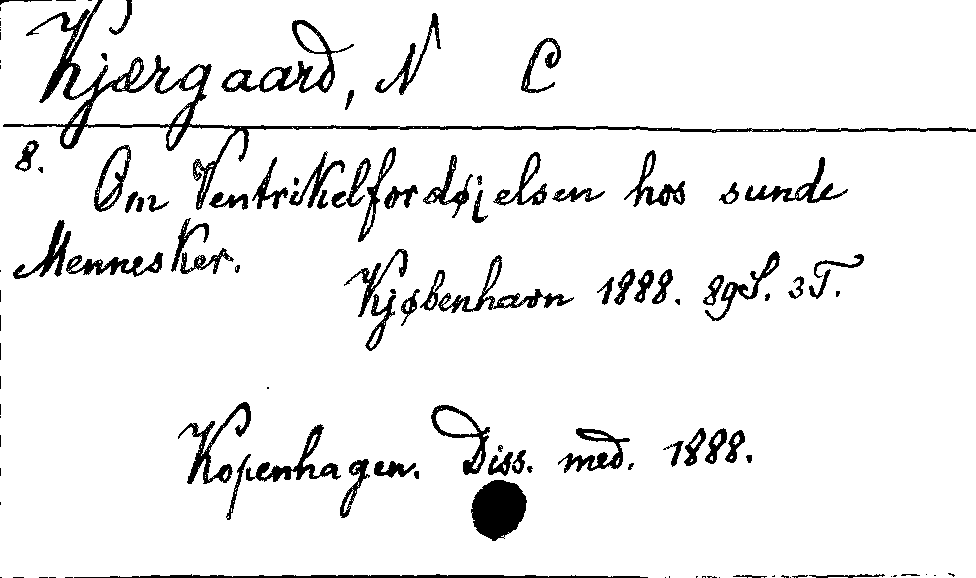 Kjærgaard, N C
8. Om Ventrikelfordøjelsen hos sunde
Mennesker.
Kjøbenhavn 1888. 89 S. 3 T.
Kopenhagen. Diss. med. 1888.